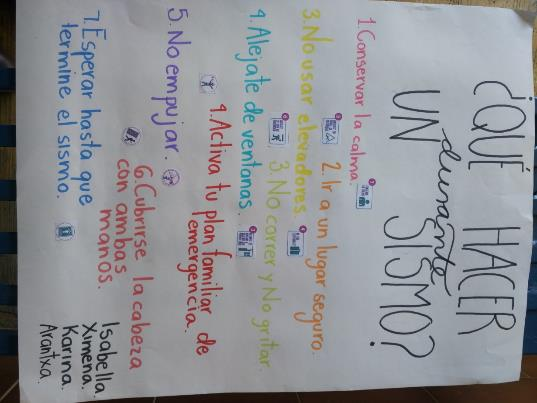 ¿QUÉ HACER
durante
UN SISMO?
1. Conservar la calma.
2. Ir a un lugar seguro.
3. No usar elevadores.
3. No correr y No gritar.
4. Alejate de ventanas.
4. Activa tu plan familiar de
emergencia.
5. No empujar.
6. Cubrirse la cabeza
con ambas
manos.
7. Esperar hasta que
termine el sismo.
Isabella.
Ximena.
Karina.
Arantxa.